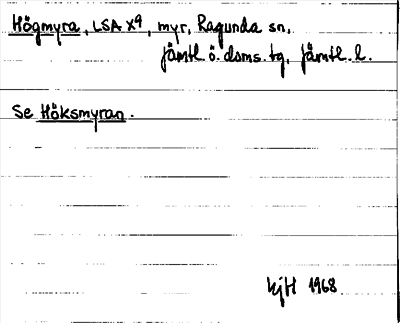 Högmyra, LSA X9, myr, Ragunda sn,
Jämtl. ö. doms. tg, Jämtl. l.
Se Höksmyran.
HjH 1968